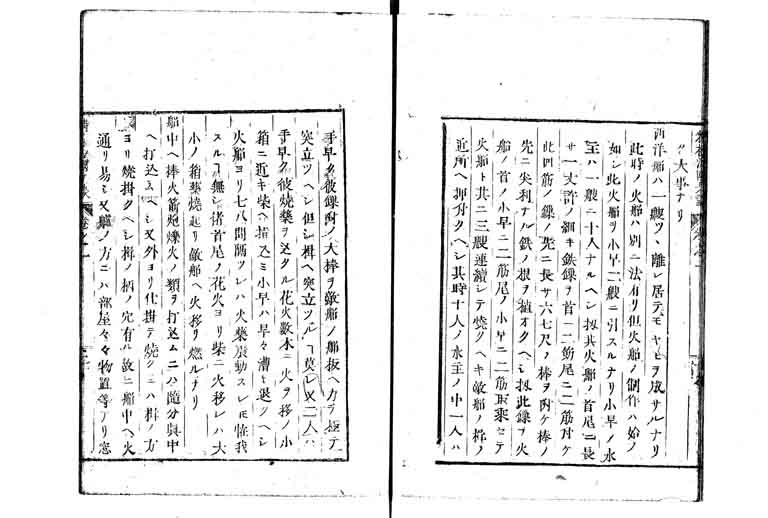 ク大事ナリ
西洋舶ハ一艘ツヽ離レ居テモヤヒヲ成サルナリ
此時ノ火舶ハ別ニ法有リ但火舶ノ制作ハ始ノ
如シ此火舶ヲ小早二艘ニ引スルナリ小早ノ水
主ハ一艘ニ十人ナルヘシ扨其火舶ノ首尾ニ長
サ一丈許ノ細キ鉄鏁ヲ首ニ二筋尾ニ二筋付ケ
此四筋ノ鏁ノ先ニ長サ六七尺ノ棒ヲ附ケ棒ノ
先ニ尖利ナル鉄ノ根ヲ植オクヘシ扨此鏁ヲ火
舶ノ首ノ小早ニ二筋尾ノ小早ニ二筋取乗セテ
火舶ト共ニ三艘連續シテ焼クヘキ敵舶ノ楫ノ
近所ヘ押付クヘシ其時十人ノ水主ノ中一人ハ
手早ク彼鏁附ノ大棒ヲ敵舶ノ舶板ヘ力テ極テ
突立ツヘシ但シ楫ヘ突立ツルヿ莫レ又二人ハ
手早ク彼焼藥ヲ込タル花火數本ニ火ヲ移ノ小
箱ニ近キ柴ヘ捂込ミ小早ハ早々漕キ退クヘシ
火舶ヨリ七八間隔ツレハ火藥發動スレモ恠我
スルヿ無シ諸首尾ノ花火ヨリ柴ニ火移レハ大
小ノ箱藥焼起リ敵舶ヘ火移リ燃ルナリ
舶中ヘ棒火箭炮爍火ノ類ヲ打込ムニハ隨分奥中
ヘ打込ムヘシ又外ヨリ仕掛テ焼クニハ楫ノ方
ヨリ焼掛クヘシ楫ノ柄ノ穴有ル故ニ舶中ヘ火
通リ易シ又艫ノ方ニハ部屋々々物置等アリ窓